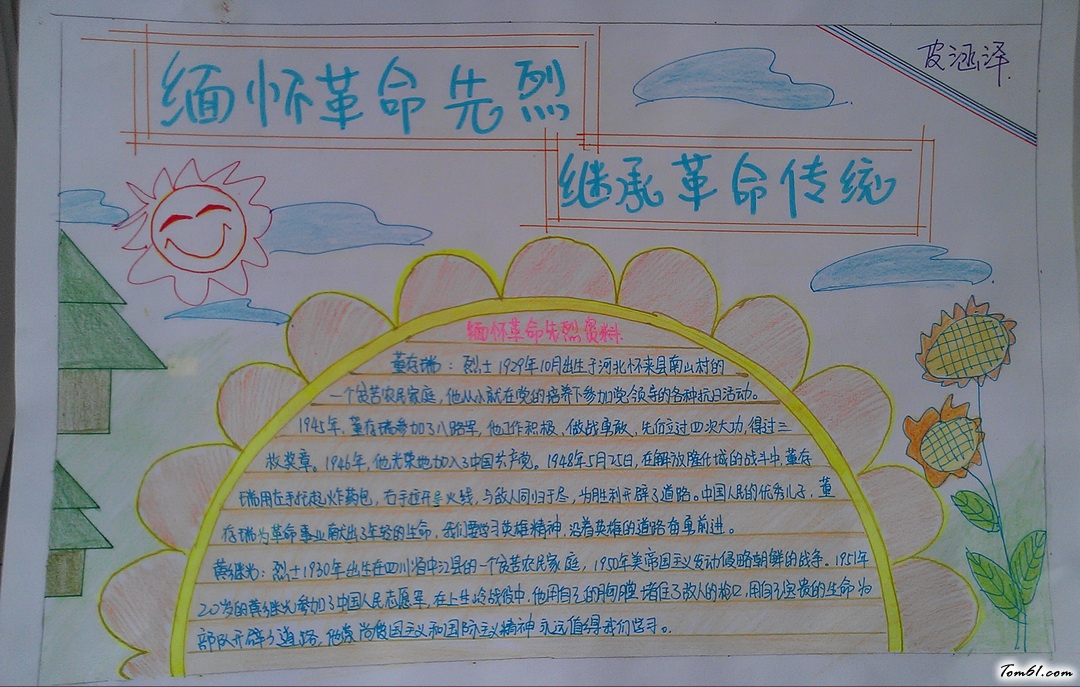 缅怀革命先烈
皮涵泽
继承革命传统
缅怀革命先烈资料
董存瑞：烈士1929年10月出生于河北怀来县南山村的
一个贫苦农民家庭，他从小就在党的培养下参加党领导的各种抗日活动。
1945年，董存瑞参加了八路军，他工作积极、做战勇敢、先后立过四次大功，得过三
枚奖章。1946年，他光荣地加入了中国共产党。1948年5月25日，在解放隆化城的战斗中，董存
瑞用左手托起炸药包，右手拉开导火线，与敌人同归于尽，为胜利开辟了道路。中国人民的优秀儿子，董
存瑞为革命事业献出了年轻的生命，我们要学习英雄精神，沿着英雄的道路奋勇前进。
黄继光：烈士1930年出生在四川省中江县的一个贫苦农民家庭，1950年美帝国主义发动侵略朝鲜的战争。1951年
20岁的黄继光参加了中国人民志愿军，在上甘岭战役中，他用自己的胸膛堵住了敌人的枪口，用自己宝贵的生命为
部队开辟了道路，他崇尚爱国主义和国际主义精神永远值得我们学习。
Tom61.com